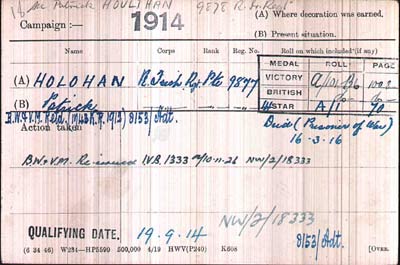 Patrick HOULIHAN 9878
(A) Where decoration was earned.
Campaign :— 1914
(B) Present situation.
Name Corps Rank Reg. No. Roll on which included (if any)
MEDAL ROLL PAGE
(A) HOLOHAN R. Irish R. Pte 9877 VICTORY
BRITISH
(B) Patrick STAR
8153/Adt.
Action taken Died (Prisoner of War)
16-3-16
B.W. & V.M. Re-issued I.V.B. 1333 10-11-26 NW/2/18333
QUALIFYING DATE, 19.9.14 NW/2/18333
8153/Adt.
(6 34 46) W234—HP5590 500,000 4/19 HWV(P240) K608 [OVER.